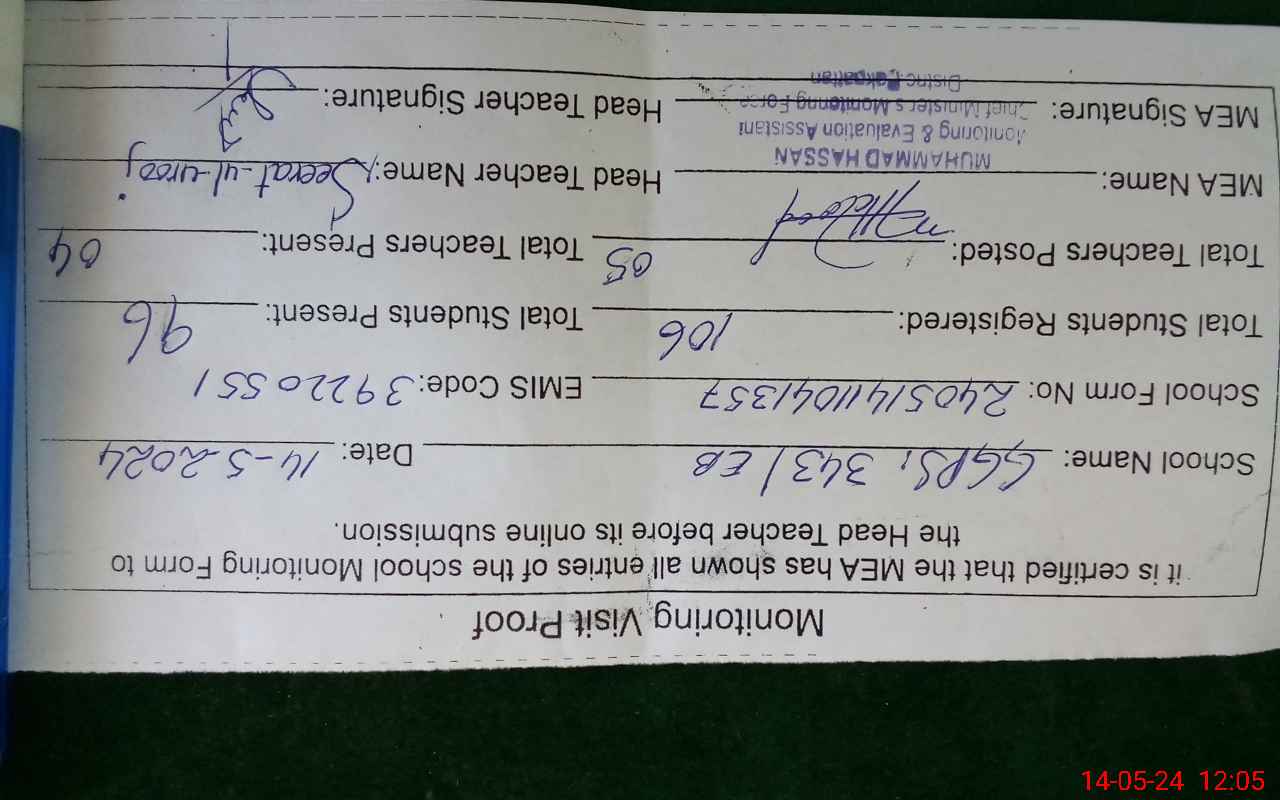 Monitoring Visit Proof
it is certified that the MEA has shown all entries of the school Monitoring Form to
the Head Teacher before its online submission.
School Name: GGPS, 343/EB Date: 14-5-2024
School Form No: 24051411041357 EMIS Code: 39220551
Total Students Registered: 106 Total Students Present: 96
Total Teachers Posted: 05 Total Teachers Present: 04
MEA Name: Head Teacher Name: Seerat-ul-urooj
MUHAMMAD HASSAN
Monitoring & Evaluation Assistant
MEA Signature: Head Teacher Signature:
Chief Minister's Monitoring Force
District Pakpattan
14-05-24 12:05